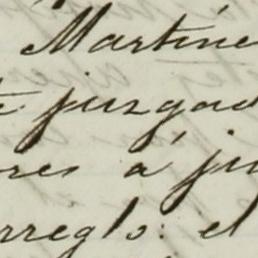 Martine
juzgad
res á ju
rreglo: el